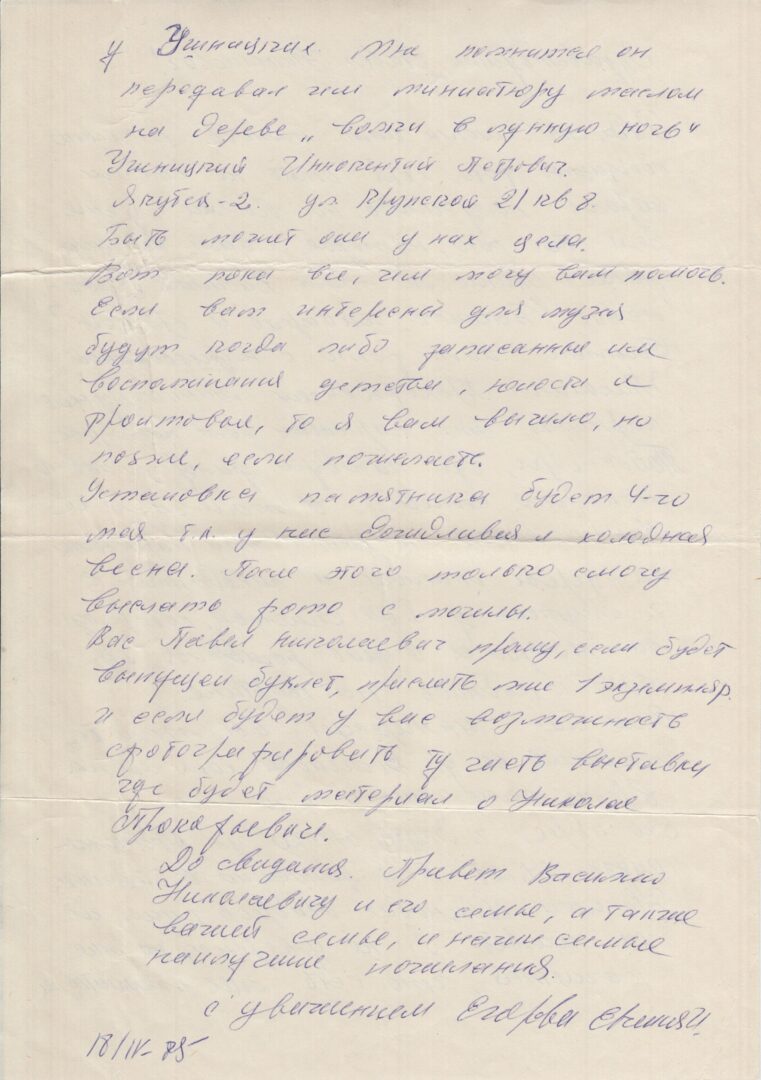 у Ушницких. Мне помнится он
передавал им миниатюру маслом
на дереве „волки в лунную ночь"
Ушницкий Иннокентий Петрович.
Якутск-2. ул. Крупской 21 кв 8.
Быть может они у них цела.
Вот пока все, чем могу вам помочь.
Если вам интересны для музея
будут когда либо записанные им
воспоминания детства, юности и
фронтовые, то я вам вышлю, но
позже, если пожелаете.
Установка памятника будет 4-го
мая т.к. у нас дождливая и холодная
весна. После этого только смогу
выслать фото с могилы.
Вас Павел Николаевич прошу, если будет
выпущен буклет, прислать мне 1 экземпляр.
и если будет у вас возможность
сфотографировать ту часть выставки
где будет материал о Николае
Прокофьевиче.
До свидания. Привет Василию
Николаевичу и его семье, а также
вашей семье, и наши самые
наилучшие пожелания.
с уважением Егорова
18/IV-85